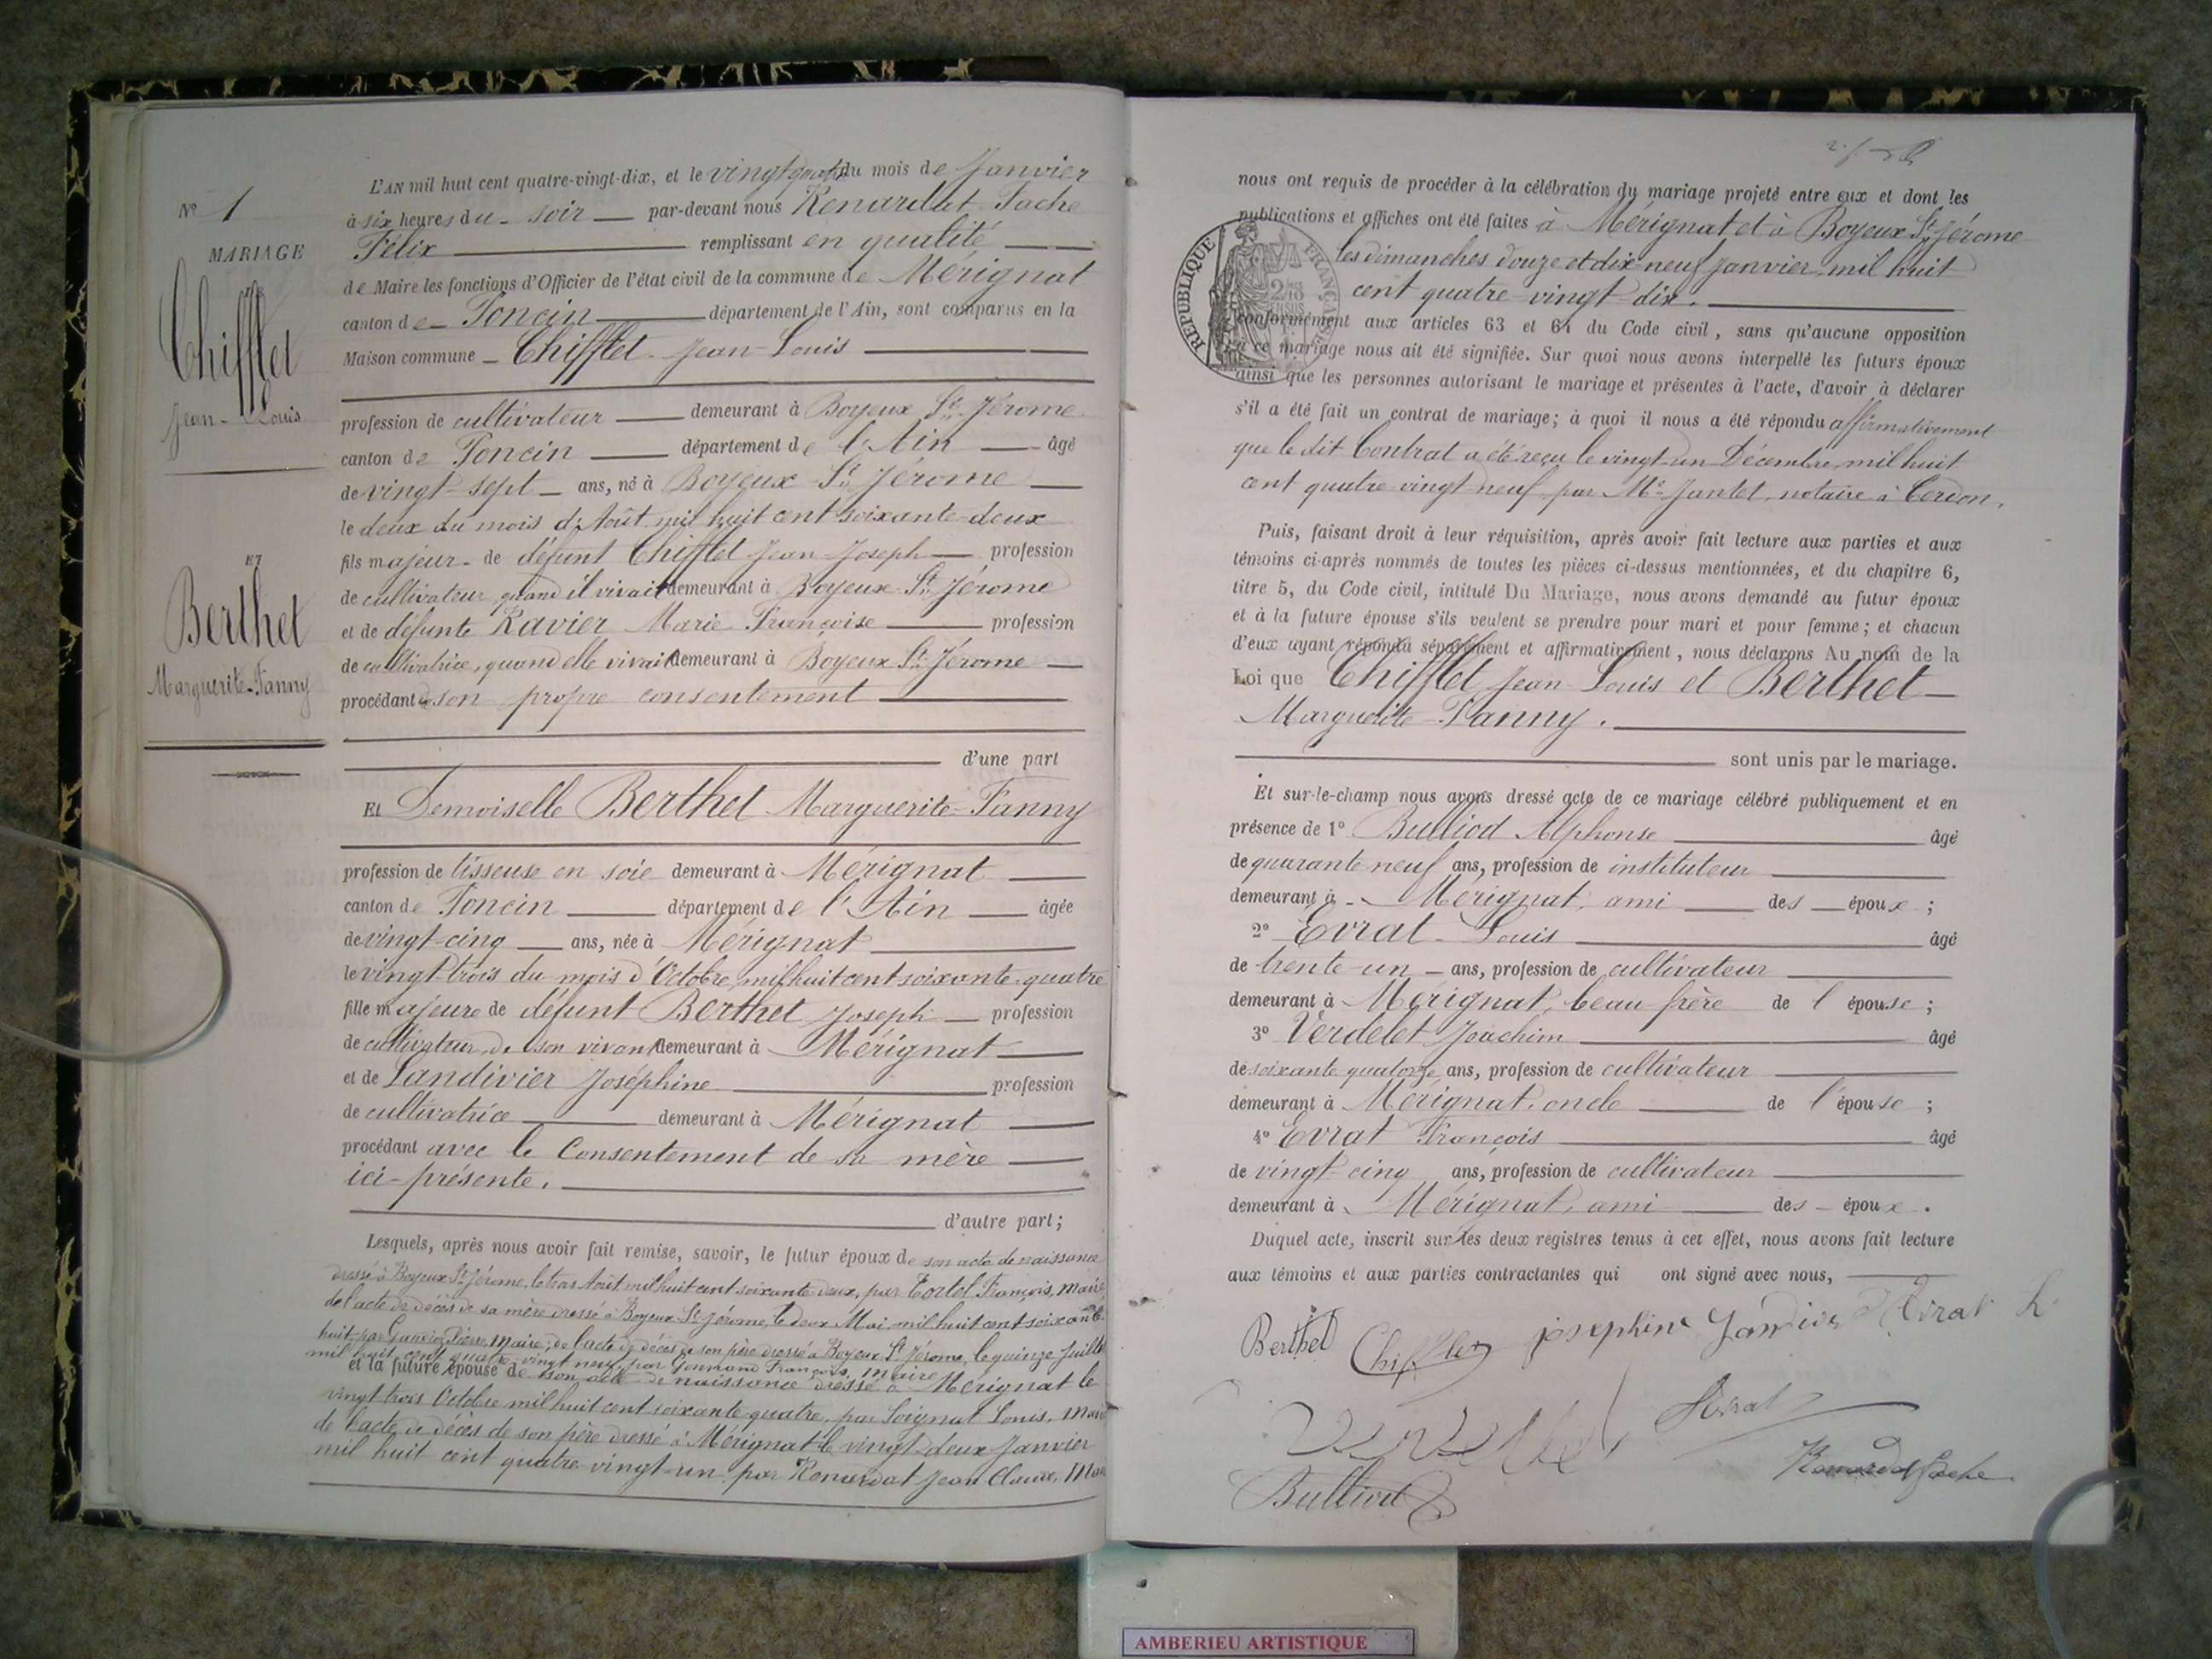 N° 1
MARIAGE
Chifflet
Jean-Louis
ET
Berthet
Marguerite-Fanny
L'AN mil huit cent quatre-vingt-dix, et le vingt quatre du mois de Janvier
à six heures du soir par-devant nous Renardat Fache
Félix remplissant en qualité
de Maire les fonctions d'Officier de l'état civil de la commune de Mérignat
canton de Poncin département de l'Ain, sont comparus en la
Maison commune Chifflet Jean-Louis
profession de cultivateur demeurant à Boyeux St Jérome
canton de Poncin département de l'Ain âgé
de vingt-sept ans, né à Boyeux St Jérome
le deux du mois d'Août mil huit cent soixante-deux
fils majeur de défunt Chifflet Jean Joseph profession
de cultivateur quand il vivait demeurant à Boyeux St Jérome
et de défunte Ravier Marie Françoise profession
de cultivatrice, quand elle vivait demeurant à Boyeux St Jérome
procédant de son propre consentement
d'une part
Et Demoiselle Berthet Marguerite-Fanny
profession de tisseuse en soie demeurant à Mérignat
canton de Poncin département de l'Ain âgée
de vingt-cinq ans, née à Mérignat
le vingt-trois du mois d'Octobre mil huit cent soixante-quatre
fille majeure de défunt Berthet Joseph profession
de cultivateur de son vivant demeurant à Mérignat
et de Jandivier Joséphine profession
de cultivatrice demeurant à Mérignat
procédant avec le Consentement de sa mère
ici-présente.
d'autre part;
Lesquels, après nous avoir fait remise, savoir, le futur époux de son acte de naissance
dressé à Boyeux St Jérome, le trois Août mil huit cent soixante deux, par Tortel François, Maire,
de l'acte de décès de sa mère dressé à Boyeux St Jérome, le deux Mai mil huit cent soixante
huit par Pierre, Maire; de l'acte de décès de son père dressé à Boyeux St Jérome, le quinze Juillet
mil huit cent quatre-vingt neuf, par François, Maire
et la future épouse de son acte de naissance dressé à Mérignat le
vingt trois Octobre mil huit cent soixante quatre, par Soignat Louis, Maire
de l'acte de décès de son père dressé à Mérignat le vingt-deux Janvier
mil huit cent quatre-vingt-un par Renardat Jean Claude, Maire
nous ont requis de procéder à la célébration du mariage projeté entre eux et dont les
publications et affiches ont été faites à Mérignat et à Boyeux St Jérome
les dimanches douze et dix-neuf Janvier, mil huit
cent quatre-vingt-dix.
REPUBLIQUE FRANÇAISE
conformément aux articles 63 et 64 du Code civil, sans qu'aucune opposition
à ce mariage nous ait été signifiée. Sur quoi nous avons interpellé les futurs époux
ainsi que les personnes autorisant le mariage et présentes à l'acte, d'avoir à déclarer
s'il a été fait un contrat de mariage; à quoi il nous a été répondu affirmativement
que le dit Contrat a été reçu le vingt-un Décembre mil huit
cent quatre-vingt-neuf par Me Jantet, notaire à Cerdon.
Puis, faisant droit à leur réquisition, après avoir fait lecture aux parties et aux
témoins ci-après nommés de toutes les pièces ci-dessus mentionnées, et du chapitre 6,
titre 5, du Code civil, intitulé Du Mariage, nous avons demandé au futur époux
et à la future épouse s'ils veulent se prendre pour mari et pour femme; et chacun
d'eux ayant répondu séparément et affirmativement, nous déclarons Au nom de la
Loi que Chifflet Jean-Louis et Berthet
Marguerite-Fanny.
sont unis par le mariage.
Et sur-le-champ nous avons dressé acte de ce mariage célébré publiquement et en
présence de 1° Bulliod Alphonse âgé
de quarante-neuf ans, profession de instituteur
demeurant à Mérignat, ami des époux;
2° Evrat Louis âgé
de trente-un ans, profession de cultivateur
demeurant à Mérignat, beau frère de l'épouse;
3° Verdelet Joachim âgé
de soixante quatorze ans, profession de cultivateur
demeurant à Mérignat, oncle de l'épouse;
4° Evrat François âgé
de vingt-cinq ans, profession de cultivateur
demeurant à Mérignat, ami des époux.
Duquel acte, inscrit sur les deux régistres tenus à cet effet, nous avons fait lecture
aux témoins et aux parties contractantes qui ont signé avec nous,
Berthet Chifflet josephine Jandivier Evrat L
Evrat
Renardat Fache
Bulliod
AMBERIEU ARTISTIQUE